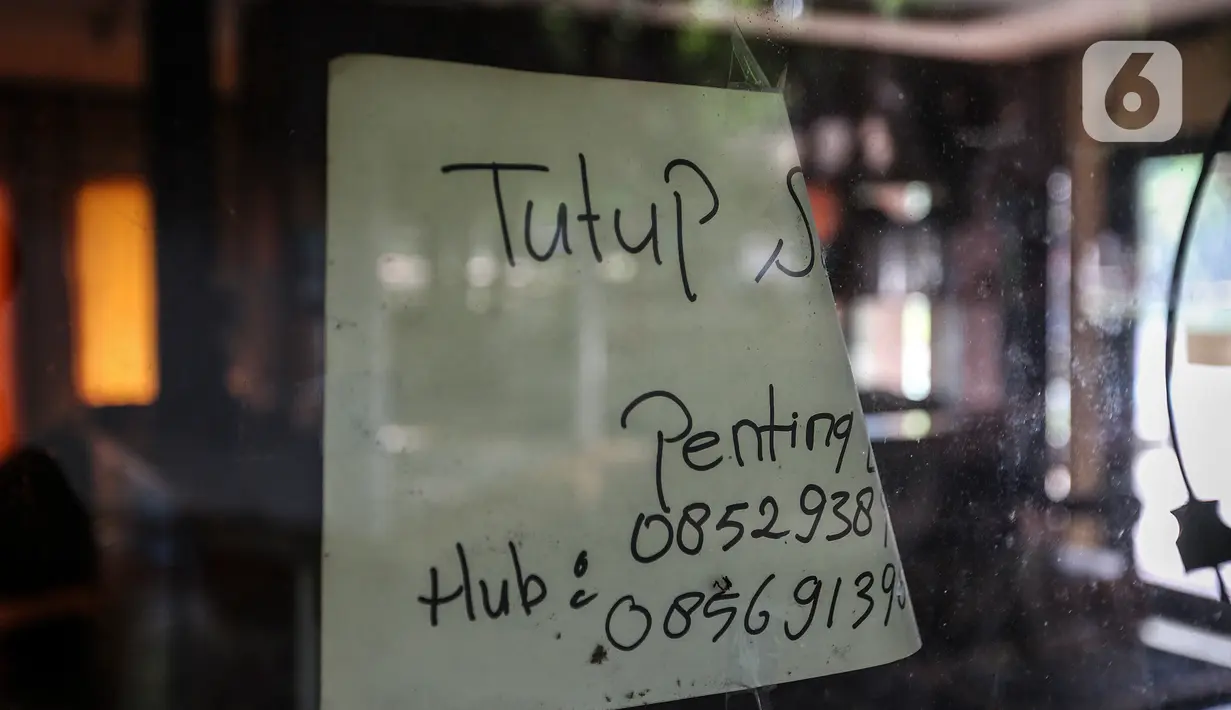 6
Tutup S
Penting
0852938
Hub : 08569139